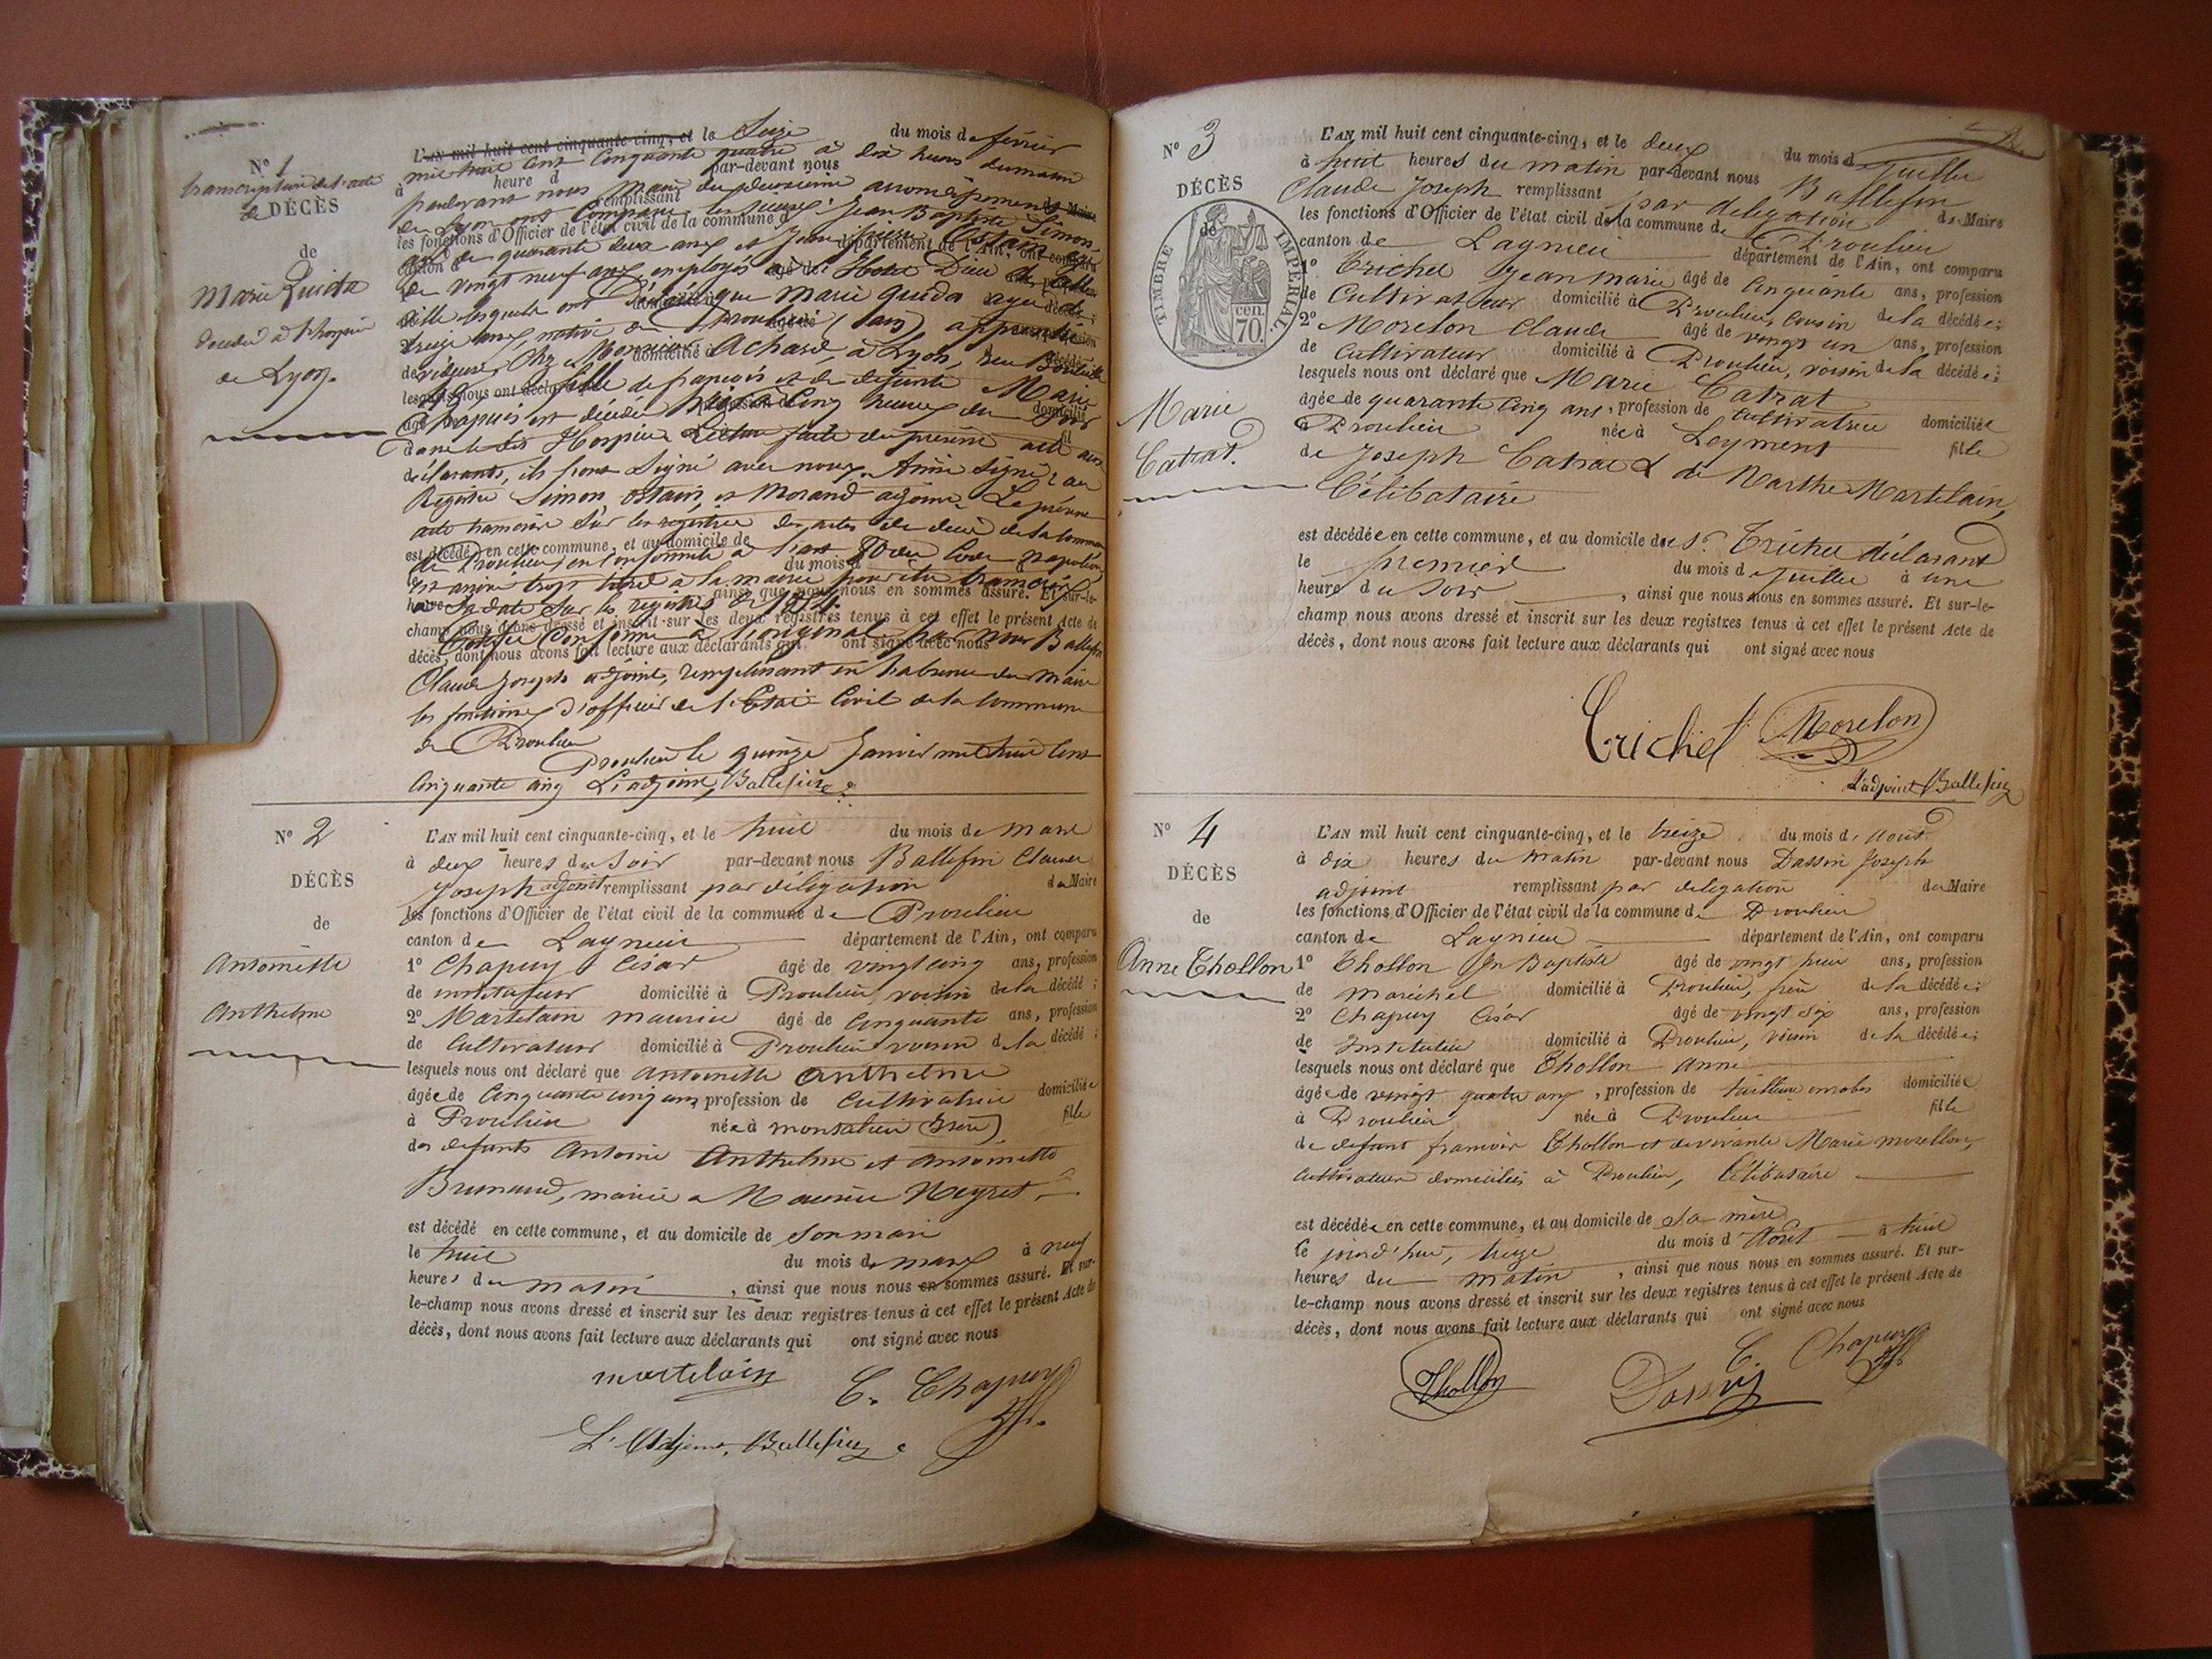 N° 1
transcription de l'acte
de DÉCÈS
de
Marie Quida
décédée à l'hospice
de Lyon.
L'AN mil huit cent cinquante-cinq, et le Seize du mois de février
mil huit cent cinquante quatre à dix heures du matin
à heure d par-devant nous
pardevant nous Maire du deuxième arrondissement
remplissant du Maire
de Lyon ont comparu les sieurs Jean Baptiste Simon,
les fonctions d'Officier de l'état civil de la commune d
âgé de quarante deux ans et Jean pierre Ostain
canton d département de l'Ain, ont comparu
de vingt neuf ans, employés à l'Hotel Dieu de cette
ville lesquels ont déclaré que Marie Quida agée de
treize ans, native de Proulieu (Ain), apprentie
dévideuse, chez Monsieur Achard, à Lyon, rue Bouteille
lesquels nous ont déclaré
fille de françois et de défunte Marie
Chapuis est décédée hier à cinq heures du soir
dans le dit Hospice. Lecture faite du présent acte aux
déclarants, ils l'ont signé avec nous. Ainsi signé au
Registre Simon, Ostain, et Morand adjoint. Le présent
acte transcrit sur les registres des actes de décès de la commune
est décédé en cette commune, et au domicile de
de Proulieu, en conformité à l'art. 80 du Code Napoléon,
le du mois d
est arrivé trop tard à la mairie pour être transcrit
heure ainsi que nous nous en sommes assuré. Et sur-le-
à sa date sur les registres de 1854.
champ nous avons dressé et inscrit sur les deux registres tenus à cet effet le présent Acte de
Copie conforme à l'original par nous Ballefin
décès, dont nous avons fait lecture aux déclarants qui ont signé avec nous
Claude Joseph adjoint, remplissant en l'absence du Maire
les fonctions d'officier de l'Etat Civil de la commune
de Proulieu
Proulieu le quinze Janvier mil huit cent
cinquante cinq L'adjoint, Ballefin
N° 2
DÉCÈS
de
Antoinette
Anthelme
L'AN mil huit cent cinquante-cinq, et le huit du mois de mars
à deux heures du Soir par-devant nous Ballefin Claude
Joseph adjoint remplissant par délégation du Maire
les fonctions d'Officier de l'état civil de la commune de Proulieu
canton de Lagnieu département de l'Ain, ont comparu
1° Chapuy César âgé de vingt cinq ans, profession
de instituteur domicilié à Proulieu, voisin de la décédé ;
2° Martelain maurice âgé de cinquante ans, profession
de Cultivateur domicilié à Proulieu voisin de la décédé ;
lesquels nous ont déclaré que Antoinette Anthelme
âgée de Cinquante cinq ans, profession de Cultivatrice domiciliée
à Proulieu née à montalieu (Isère) fille
des défunts Antoine Anthelme et Antoinette
Brunand, mariée a Maurice Neyret
est décédé en cette commune, et au domicile de son mari
le huit du mois de mars à neuf
heures du matin , ainsi que nous nous en sommes assuré. Et sur-
le-champ nous avons dressé et inscrit sur les deux registres tenus à cet effet le présent Acte de
décès, dont nous avons fait lecture aux déclarants qui ont signé avec nous
martelain C. Chapuy
L'Adjoint, Ballefin
N° 3
DÉCÈS
de
TIMBRE IMPERIAL.
70. cen.
Marie
Catrat.
L'AN mil huit cent cinquante-cinq, et le deux du mois de Juillet
à huit heures du matin par-devant nous Ballefin
Claude Joseph remplissant par délégation du Maire
les fonctions d'Officier de l'état civil de la commune de Proulieu
canton de Lagnieu département de l'Ain, ont comparu
1° Trichet Jean marie âgé de Cinquante ans, profession
de Cultivateur domicilié à Proulieu, Cousin de la décédée ;
2° Morelon Claude âgé de vingt un ans, profession
de Cultivateur domicilié à Proulieu, voisin de la décédée ;
lesquels nous ont déclaré que Marie Catrat
âgée de quarante cinq ans, profession de cultivatrice domiciliée
à Proulieu née à Leyment fille
de Joseph Catrat & de Marthe Martelain,
Célibataire
est décédée en cette commune, et au domicile du s. Trichet déclarant
le premier du mois de Juillet à une
heure du soir , ainsi que nous nous en sommes assuré. Et sur-le-
champ nous avons dressé et inscrit sur les deux registres tenus à cet effet le présent Acte de
décès, dont nous avons fait lecture aux déclarants qui ont signé avec nous
Trichet Morelon
L'adjoint Ballefin
N° 4
DÉCÈS
de
Anne Thollon
L'AN mil huit cent cinquante-cinq, et le treize du mois d'Aout
à dix heures du matin par-devant nous Dassin Joseph
adjoint remplissant par délégation du Maire
les fonctions d'Officier de l'état civil de la commune de Proulieu
canton de Lagnieu département de l'Ain, ont comparu
1° Thollon Jn Baptiste âgé de vingt huit ans, profession
de maréchal domicilié à Proulieu, frère de la décédée ;
2° Chapuy César âgé de vingt six ans, profession
de Instituteur domicilié à Proulieu, voisin de la décédée ;
lesquels nous ont déclaré que Thollon Anne
âgée de vingt quatre ans, profession de tailleuse en robes domiciliée
à Proulieu née à Proulieu fille
de défunt françois Thollon et de vivante Marie morellon,
cultivateurs domiciliés à Proulieu, Célibataire
est décédée en cette commune, et au domicile de sa mère
le jourd'hui, treize du mois d'Août à huit
heures du matin , ainsi que nous nous en sommes assuré. Et sur-
le-champ nous avons dressé et inscrit sur les deux registres tenus à cet effet le présent Acte de
décès, dont nous avons fait lecture aux déclarants qui ont signé avec nous
Thollon Dassin C. Chapuy